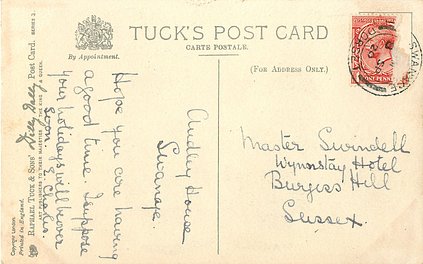 TUCK'S POST CARD
CARTE POSTALE.
By Appointment.
(FOR ADDRESS ONLY.)
SWANAGE
DORSET
ONE PENNY
Audley House
Swanage.
Hope you are having
a good time. I suppose
your holidays will be over
soon.
Master Swindell
Wynnstay Hotel
Burgess Hill
Sussex.
RAPHAEL TUCK & SONS' "Silly Silly" POST CARD. SERIES
ART PUBLISHERS TO THEIR MAJESTIES THE KING & QUEEN.
Copyright London.
Printed in England.